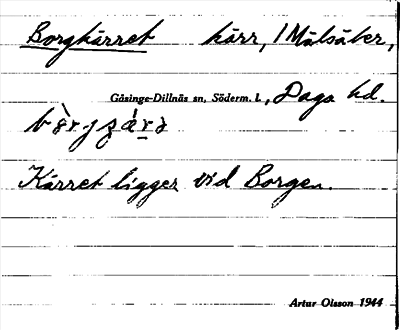 Borgkärret kärr, 1 Målsåker,
Gåsinge-Dillnäs sn, Söderm. l., Daga hd.
Kärret ligger vid Borgen.
Artur Olsson 1944